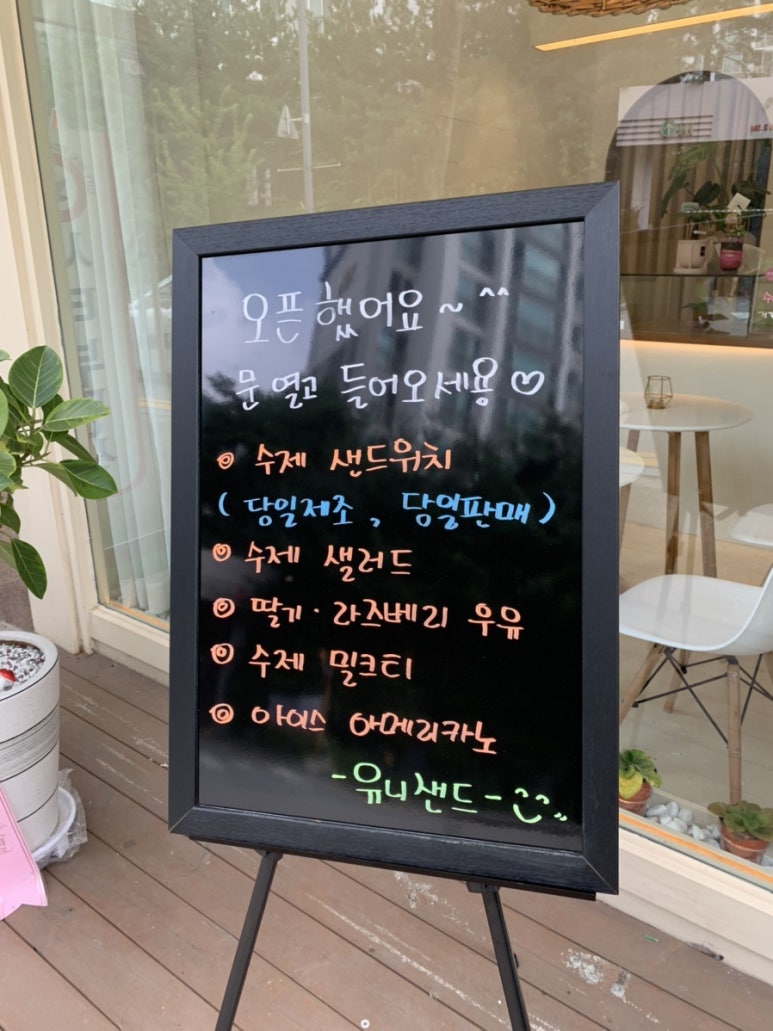 오픈했어요~^^
문 열고 들어오세용♡
◎ 수제 샌드위치
(당일제조, 당일판매)
◎ 수제 샐러드
◎ 딸기·라즈베리 우유
◎ 수제 밀크티
◎ 아이스 아메리카노
-유니샌드-